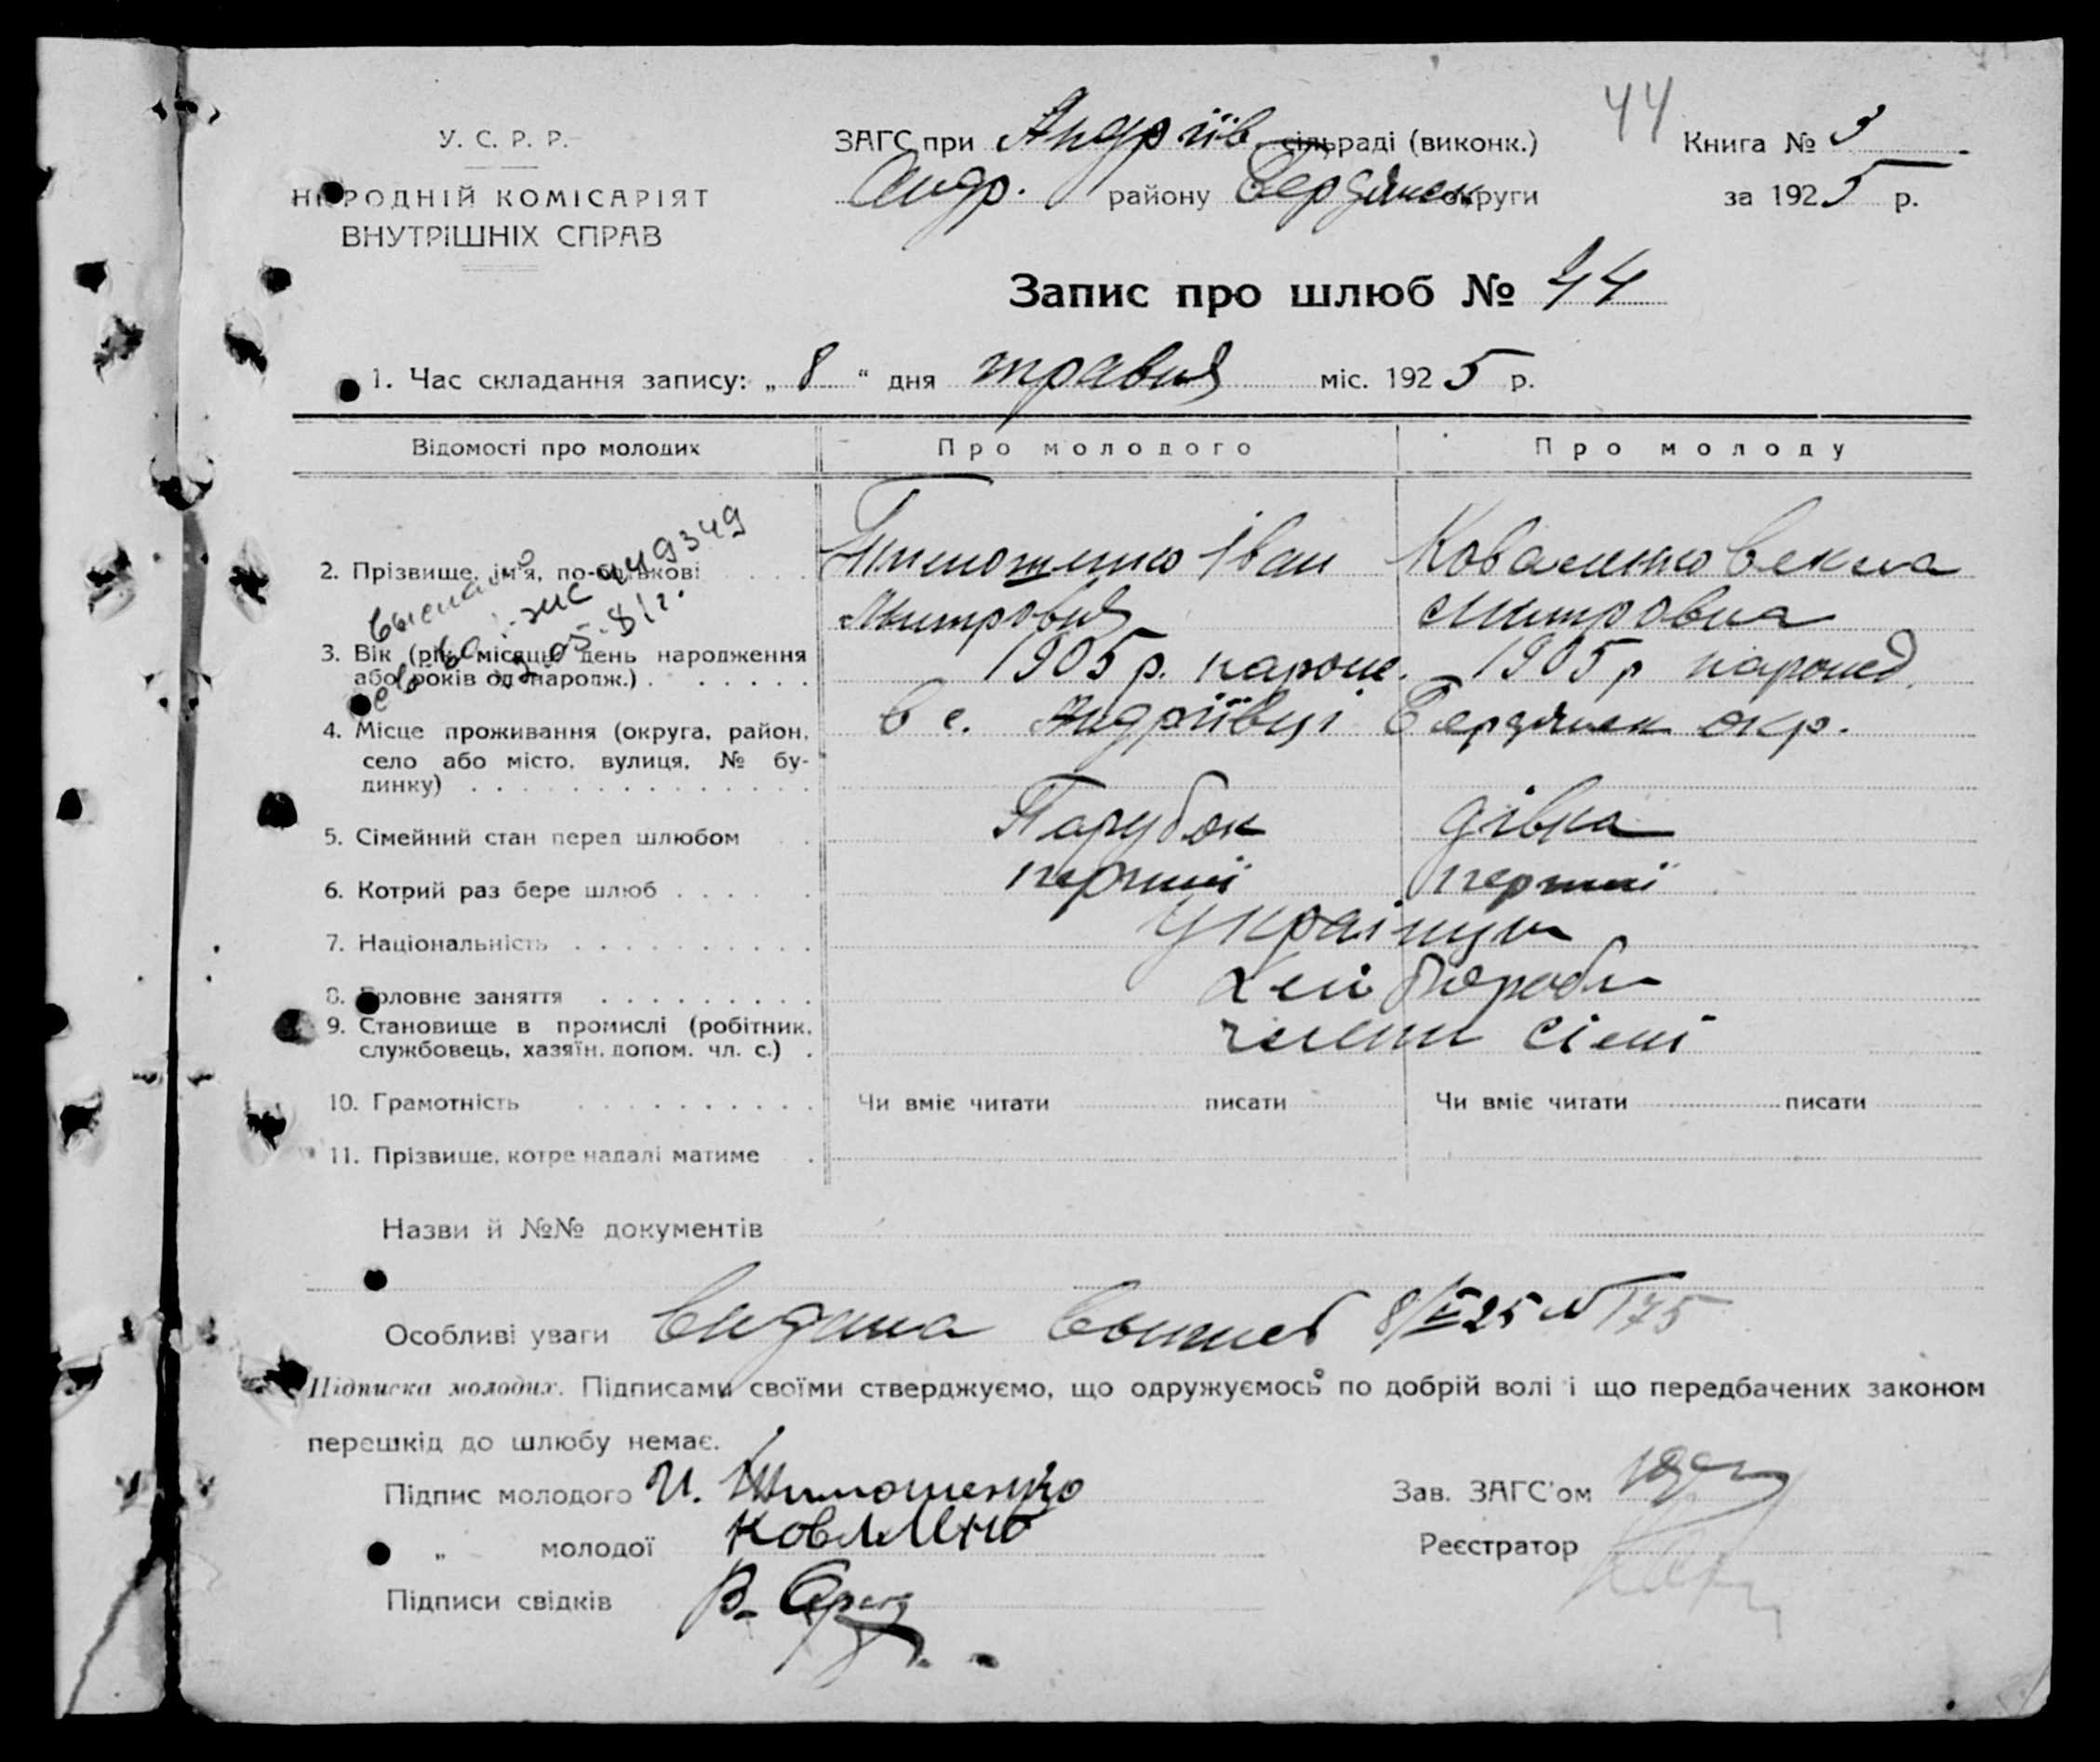 У. С. Р. Р.
НАРОДНІЙ КОМІСАРІЯТ
ВНУТРІШНІХ СПРАВ
ЗАГС при Андріїв. сільраді (виконк.)
Андр. району Бердянськ округи
44
Книга № 3
за 1925 р.
Запис про шлюб № 44
1. Час складання запису: „ 8 “ дня травня міс. 1925 р.
Відомості про молодих
Про молодого
Про молоду
2. Прізвище, ім'я, по-батькові
Тимошенко Іван Коваленко Векла
Митров Митровна
3. Вік (рік, місяць, день народження
або років од народж.)
1905 р. 1905 р
4. Місце проживання (округа, район,
село або місто, вулиця, № бу-
динку)
в с. Андріївці Бердянськ окр.
5. Сімейний стан перед шлюбом
Парубок дівка
6. Котрий раз бере шлюб
перший перший
7. Національність
Українци
8. Головне заняття
Хлібороби
9. Становище в промислі (робітник,
службовець, хазяїн, допом. чл. с.)
члени сімї
10. Грамотність Чи вміє читати писати Чи вміє читати писати
11. Прізвище, котре надалі матиме
Назви й №№ документів
Особливі уваги видана 8/V 25 N 175
Підписка молодих. Підписами своїми стверджуємо, що одружуємось по добрій волі і що передбачених законом
перешкід до шлюбу немає.
Підпис молодого И. Тимошенко
„ молодої
Підписи свідків В.
Зав. ЗАГС'ом
Реєстратор